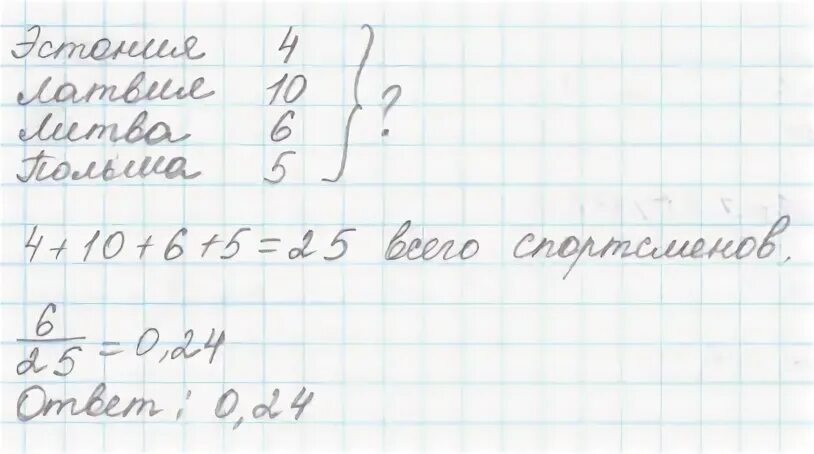 Эстония 4
Латвия 10
Литва 6
Польша 5
?
4+10+6+5=25 всего спортсменов.
6/25=0,24
Ответ: 0,24